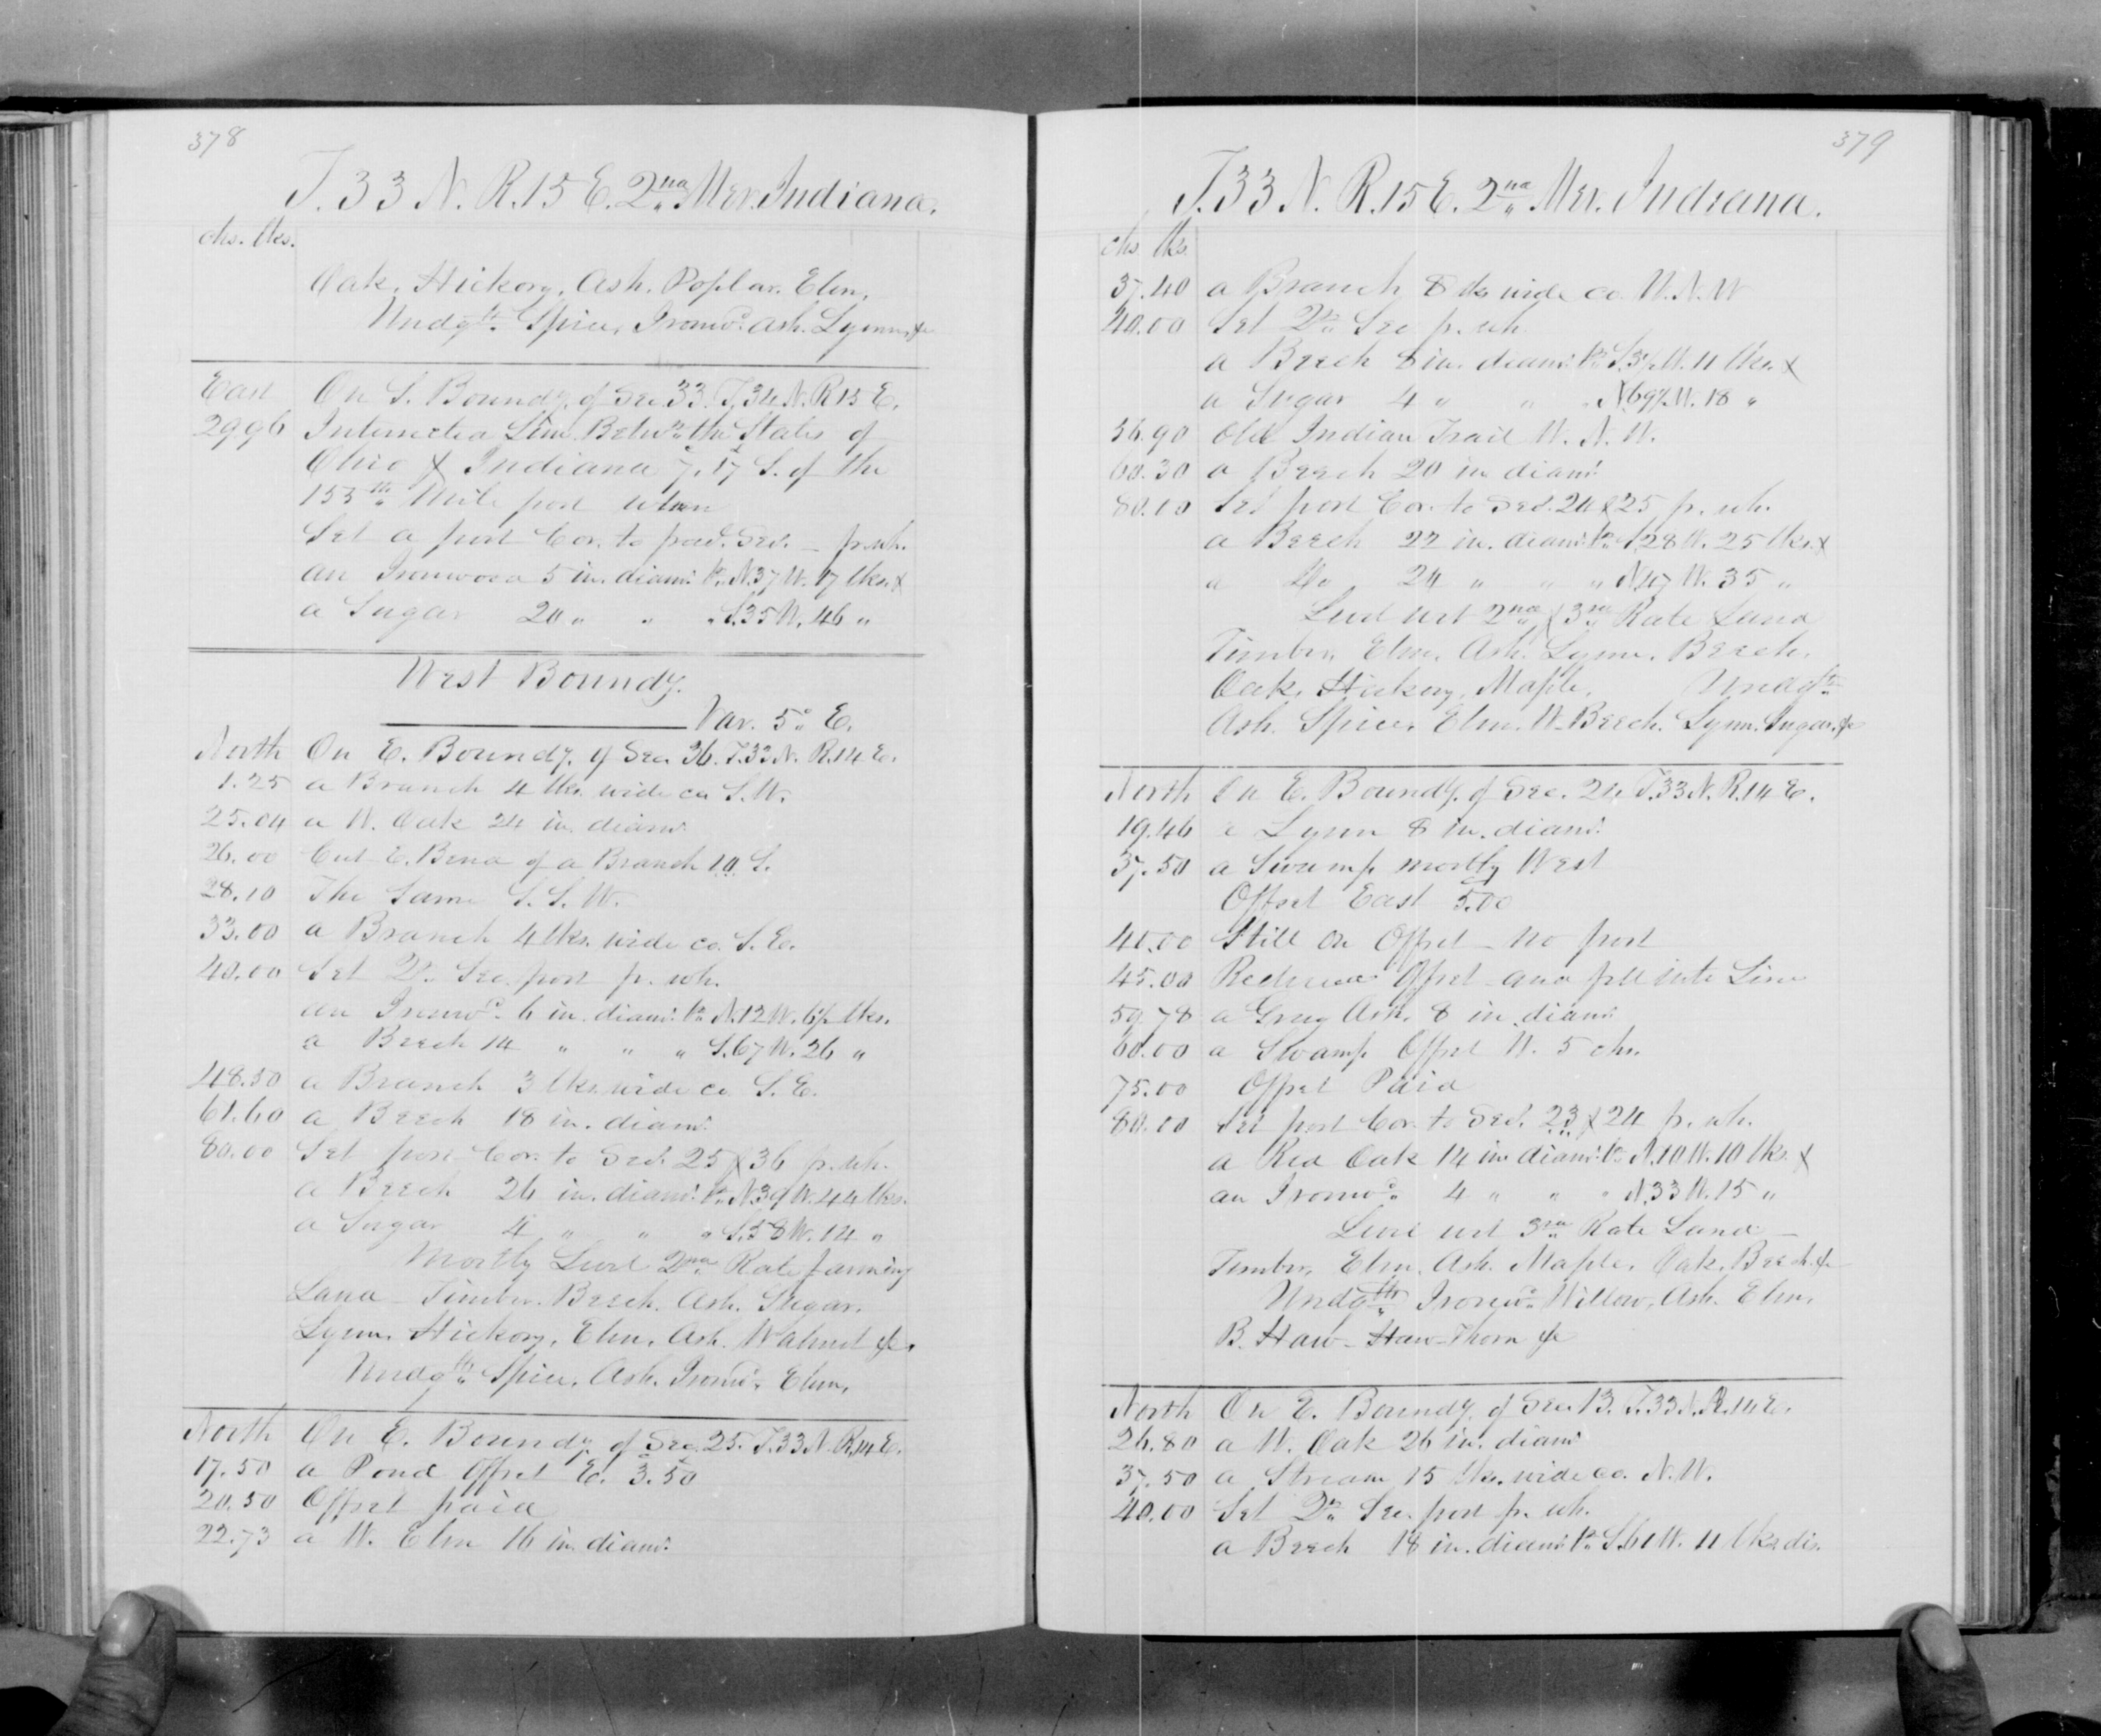 378
T. 33 N. R. 15 E. 2nd Mer. Indiana.
chs. lks.
Oak, Hickory, Ash, Poplar, Elm,
Undgth. Spice, Ironwd. Ash. Lynn, &c
East On S. Boundy. of Sec. 33. T. 34 N. R 15 E.
29.96 Intersected Line Betwn. the States of
Ohio & Indiana 7.17 S. of the
155th Mile post when
Set a post Cor. to frac. Secs. — p. wh.
an Ironwood 5 in. diamr. br. N. 37 W. 17 lks. &
a Sugar 20 " " " S. 35 W. 46 "
West Boundy.
Var. 5° E.
North On E. Boundy. of Sec. 36. T. 33 N. R. 14 E.
1.25 a Branch 4 lks. wide co. S. W.
25.04 a W. Oak 24 in. diamr.
26.00 Cut E. Bend of a Branch to S.
28.10 The Same S. S. W.
33.00 a Branch 4 lks. wide co. S. E.
40.00 Set Qr. Sec. post p. wh.
an Ironwd. 6 in. diamr. br. N. 12 W. 6½ lks.
a Beech 14 " " " S. 67 W. 26 "
48.50 a Branch 3 lks. wide co S. E.
61.60 a Beech 18 in. diamr.
80.00 Set post Cor. to Secs. 25 & 36 p. wh.
a Beech 26 in. diamr. br. N. 39 W. 44 lks.
a Sugar 4 " " " S. 58 W. 14 "
Mostly Level 2nd Rate farming
Land — Timber. Beech. Ash. Sugar.
Lynn. Hickory, Elm, Ash. Walnut &c.
Undgth. Spice, Ash. Ironwd. Elm,
North On E. Boundy. of Sec. 25. T. 33 N. R. 14 E.
17.50 a Pond Offset E. 3.50
20.50 Offset paid
22.73 a W. Elm 16 in diamr.
379
T. 33 N. R. 15 E. 2nd Mer. Indiana.
chs lks
37.40 a Branch 8 lks wide co. W. N. W
40.00 Set Qr. Sec p. wh
a Beech 8 in. diamr. br. S. 3½ W. 11 lks. &
a Sugar 4 " " " N. 69½ W. 18 "
56.90 Old Indian Trail W. N. W.
60.30 a Beech 20 in diamr.
80.00 Set post Cor. to Secs. 24 & 25 p. wh.
a Beech 22 in. diamr. br. S. 28 W. 25 lks. &
a Do 24 " " " N. 47 W. 35 "
Level wet 2nd & 3rd Rate Land
Timber, Elm, Ash. Lynn, Beech.
Oak, Hickory, Maple, Undgth
Ash. Spice, Elm. W. Beech. Lynn. Sugar, &c
North On E. Boundy. of Sec. 24 T. 33 N. R. 14 E.
19.46 a Lynn 8 in. diamr.
37.50 a Swamp mostly West
Offset East 5.00
40.00 Still on Offset — no post
45.00 Offset and fell into Line
59.78 a Grey Ash, 8 in. diamr
60.00 a Swamp Offset W. 5 chs.
75.00 Offset Paid
80.00 Set post Cor. to Secs. 23 & 24 p. wh.
a Red Oak 14 in. diamr. br. N. 10 W. 10 lks. &
an Ironwd. 4 " " " N. 33 W. 15 "
Level wet 3rd Rate Land —
Timber, Elm, Ash. Maple, Oak, Beech. &c
Undgth Ironwd. Willow, Ash. Elm,
B. Haw — Haw-Thorn &c
North On E. Boundy. of Sec. 13. T. 33 N. R. 14 E.
26.80 a W. Oak 26 in. diamr
37.50 a Stream 15 lks. wide co. N. W.
40.00 Set Qr. Sec. post p. wh.
a Beech 18 in. diamr. br. S. 61 W. 11 lks. dis.